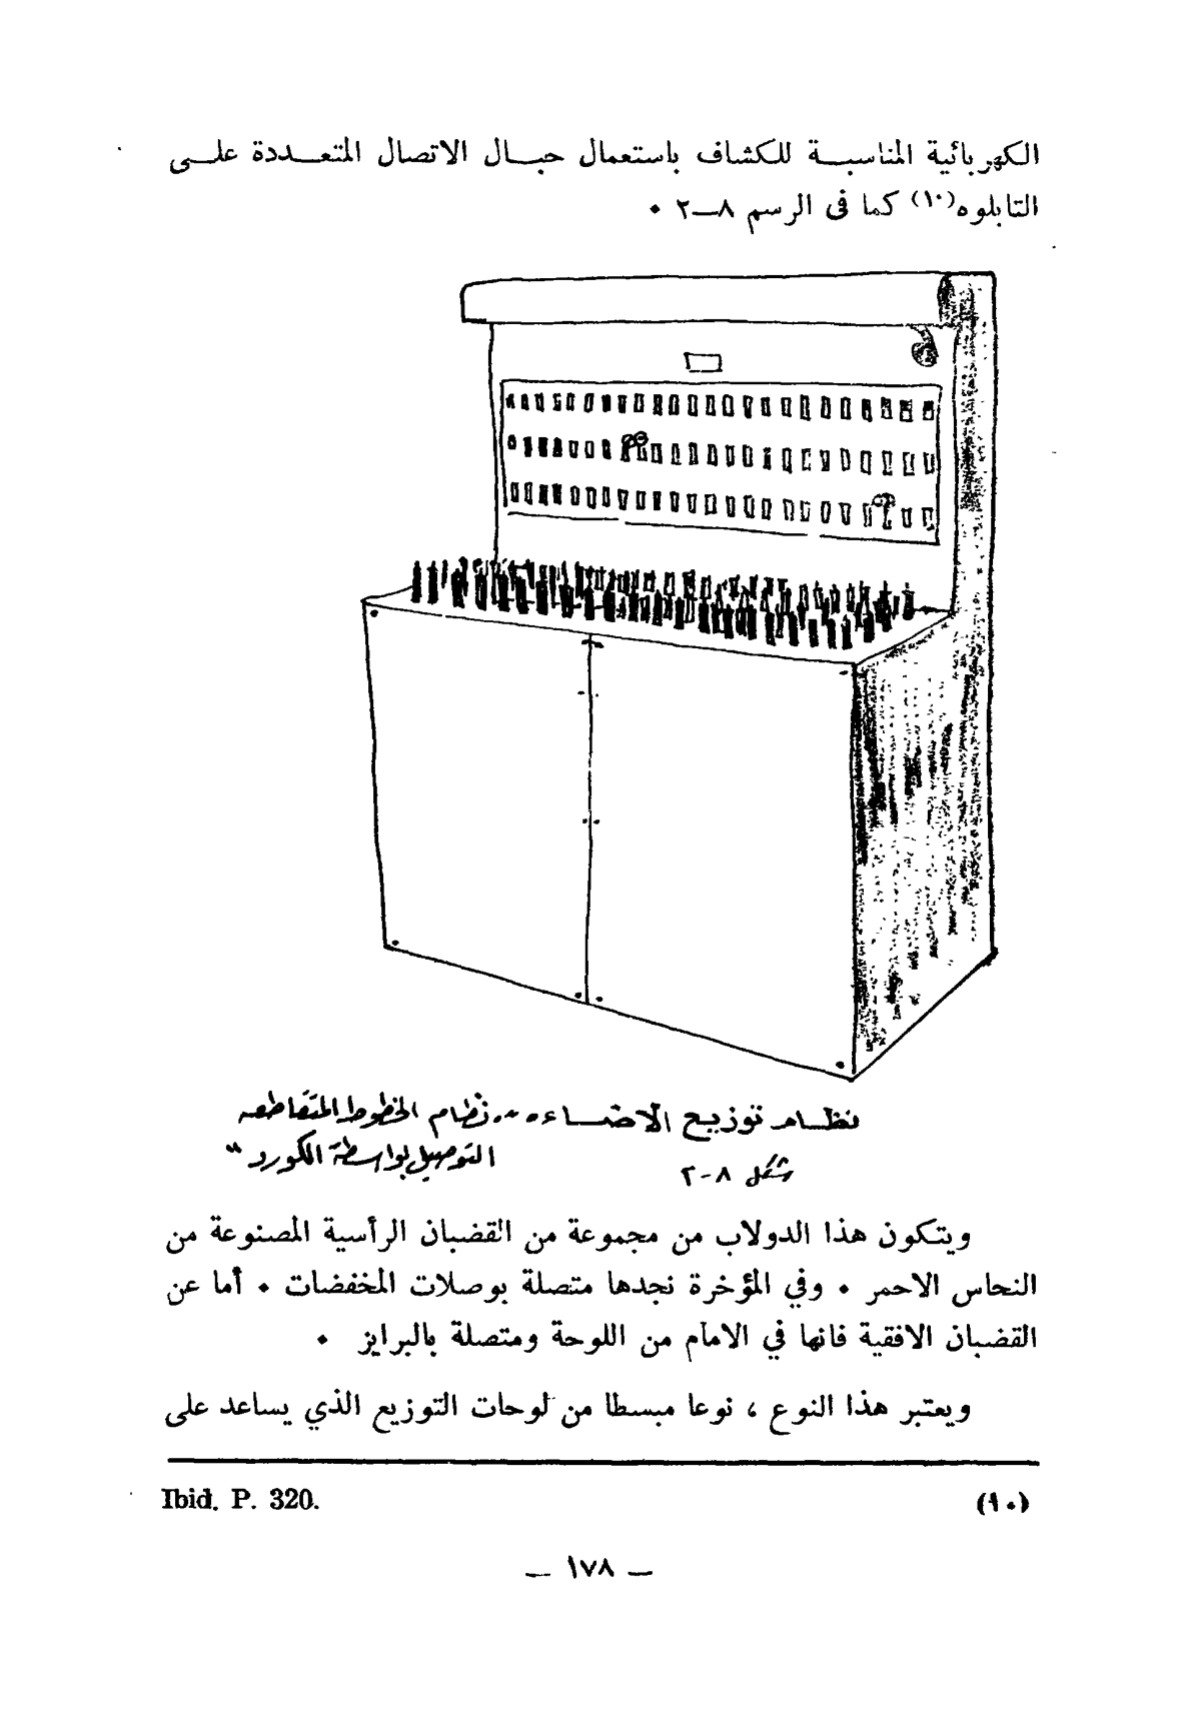 الكهربائية المناسبة للكشاف باستعمال حبال الاتصال المتعددة على
التابلوه(١٠) كما فى الرسم ٨–٢ .
نظام توزيع الاضاءه .. نظام الخطوط المتقاطعه
شكل ٨-٢ التوصيل بواسطة الكورد "
ويتكون هذا الدولاب من مجموعة من القضبان الرأسية المصنوعة من
النحاس الاحمر . وفي المؤخرة نجدها متصلة بوصلات المخفضات . أما عن
القضبان الافقية فانها في الامام من اللوحة ومتصلة بالبرايز .
ويعتبر هذا النوع ، نوعا مبسطا من لوحات التوزيع الذي يساعد على
(١٠) Ibid. P. 320.
— ١٧٨ —